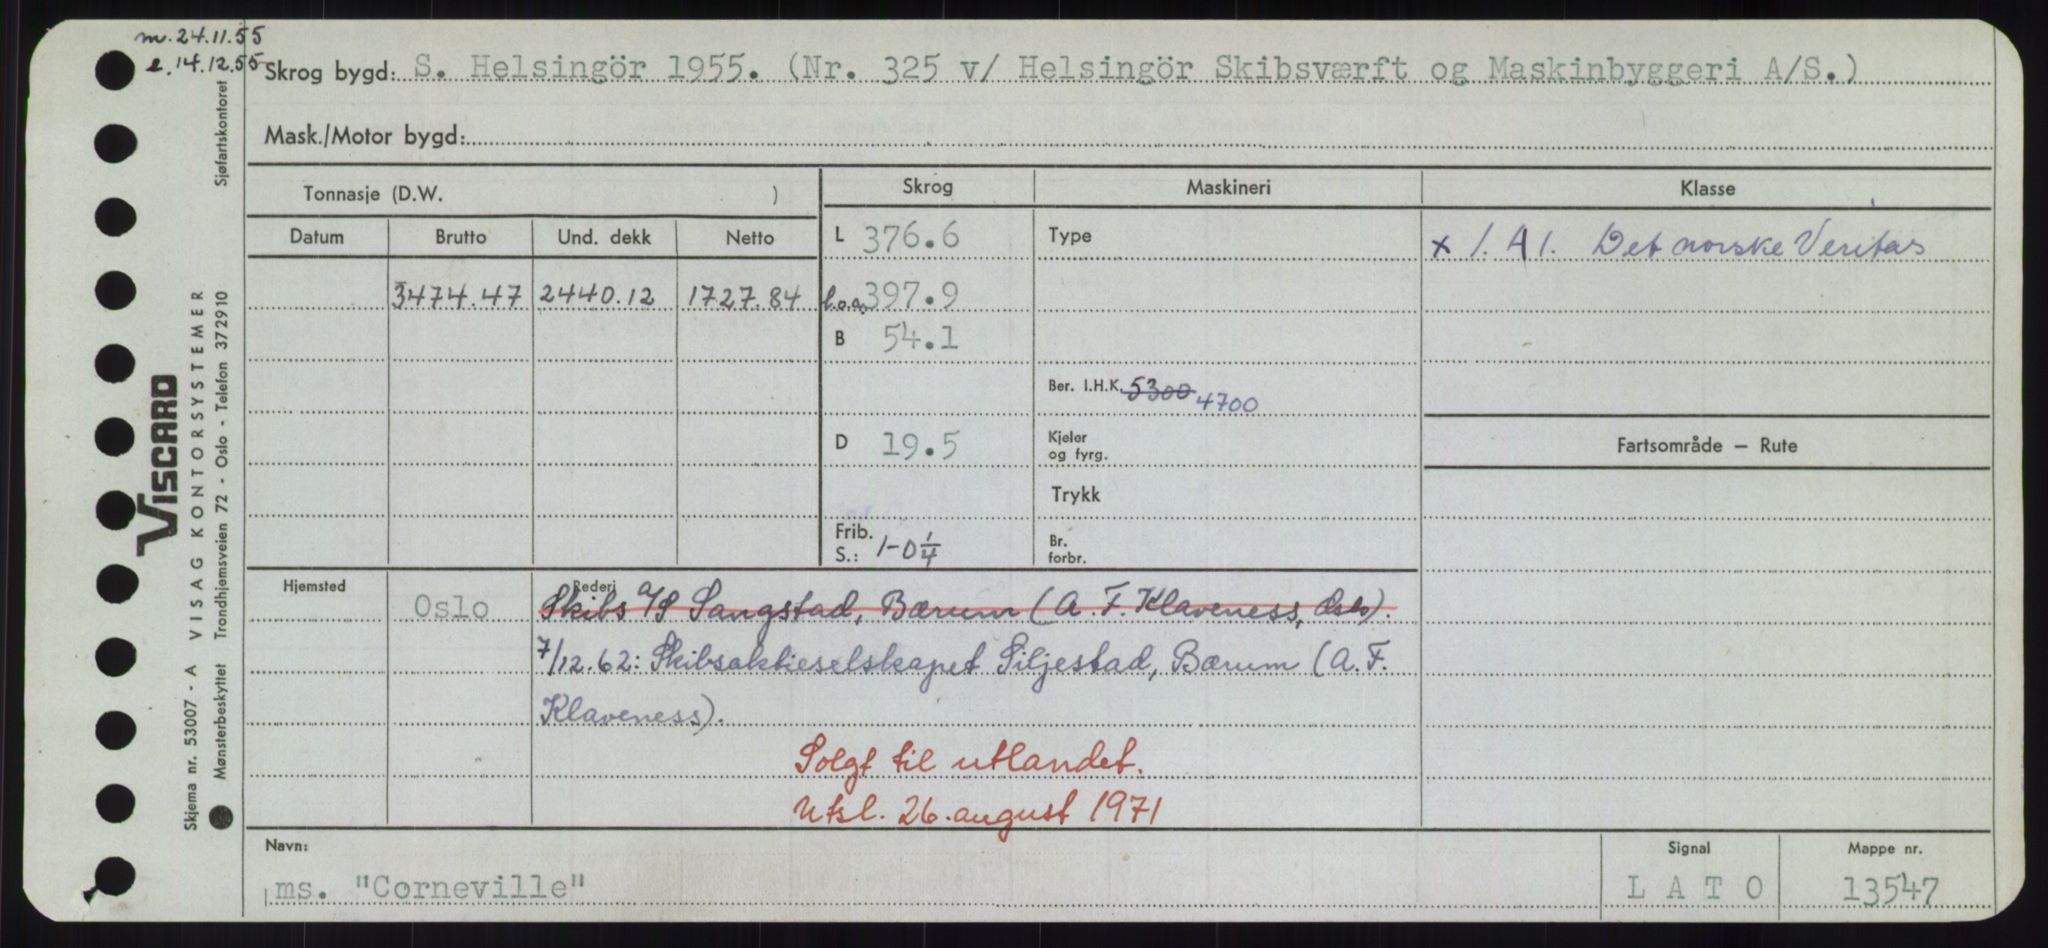 m. 24.11.55
e. 14.12.55
Skrog bygd: S. Helsingör 1955. (Nr. 325 v/ Helsingör Skibsværft og Maskinbyggeri A/S.)
Mask./Motor bygd:
Tonnasje (D.W. )
Skrog Maskineri Klasse
Datum Brutto Und. dekk Netto
L 376.6 Type x 1. A 1. Det norske Veritas
3474.47 2440.12 1727.84 l.o.a. 397.9
B 54.1
Ber. I.H.K. 5300 4700
D 19.5 Kjeler og fyrg. Fartsområde – Rute
Trykk
Frib. S.: 1-0 1/4 Br. forbr.
Hjemsted Oslo Rederi Skibs A/S Sangstad, Bærum (A. F. Klaveness, Oslo).
7/12.62: Skibsaktieselskapet Siljestad, Bærum (A. F.
Klaveness).
Solgt til utlandet.
Utsl. 26. august 1971
Navn: Signal Mappe nr.
ms. "Corneville" L A T O 13547
VISCARD
Skjema nr. 53007 - A VISAG KONTORSYSTEMER
Mønsterbeskyttet Trondhjemsveien 72 - Oslo - Telefon 372910 Sjøfartskontoret